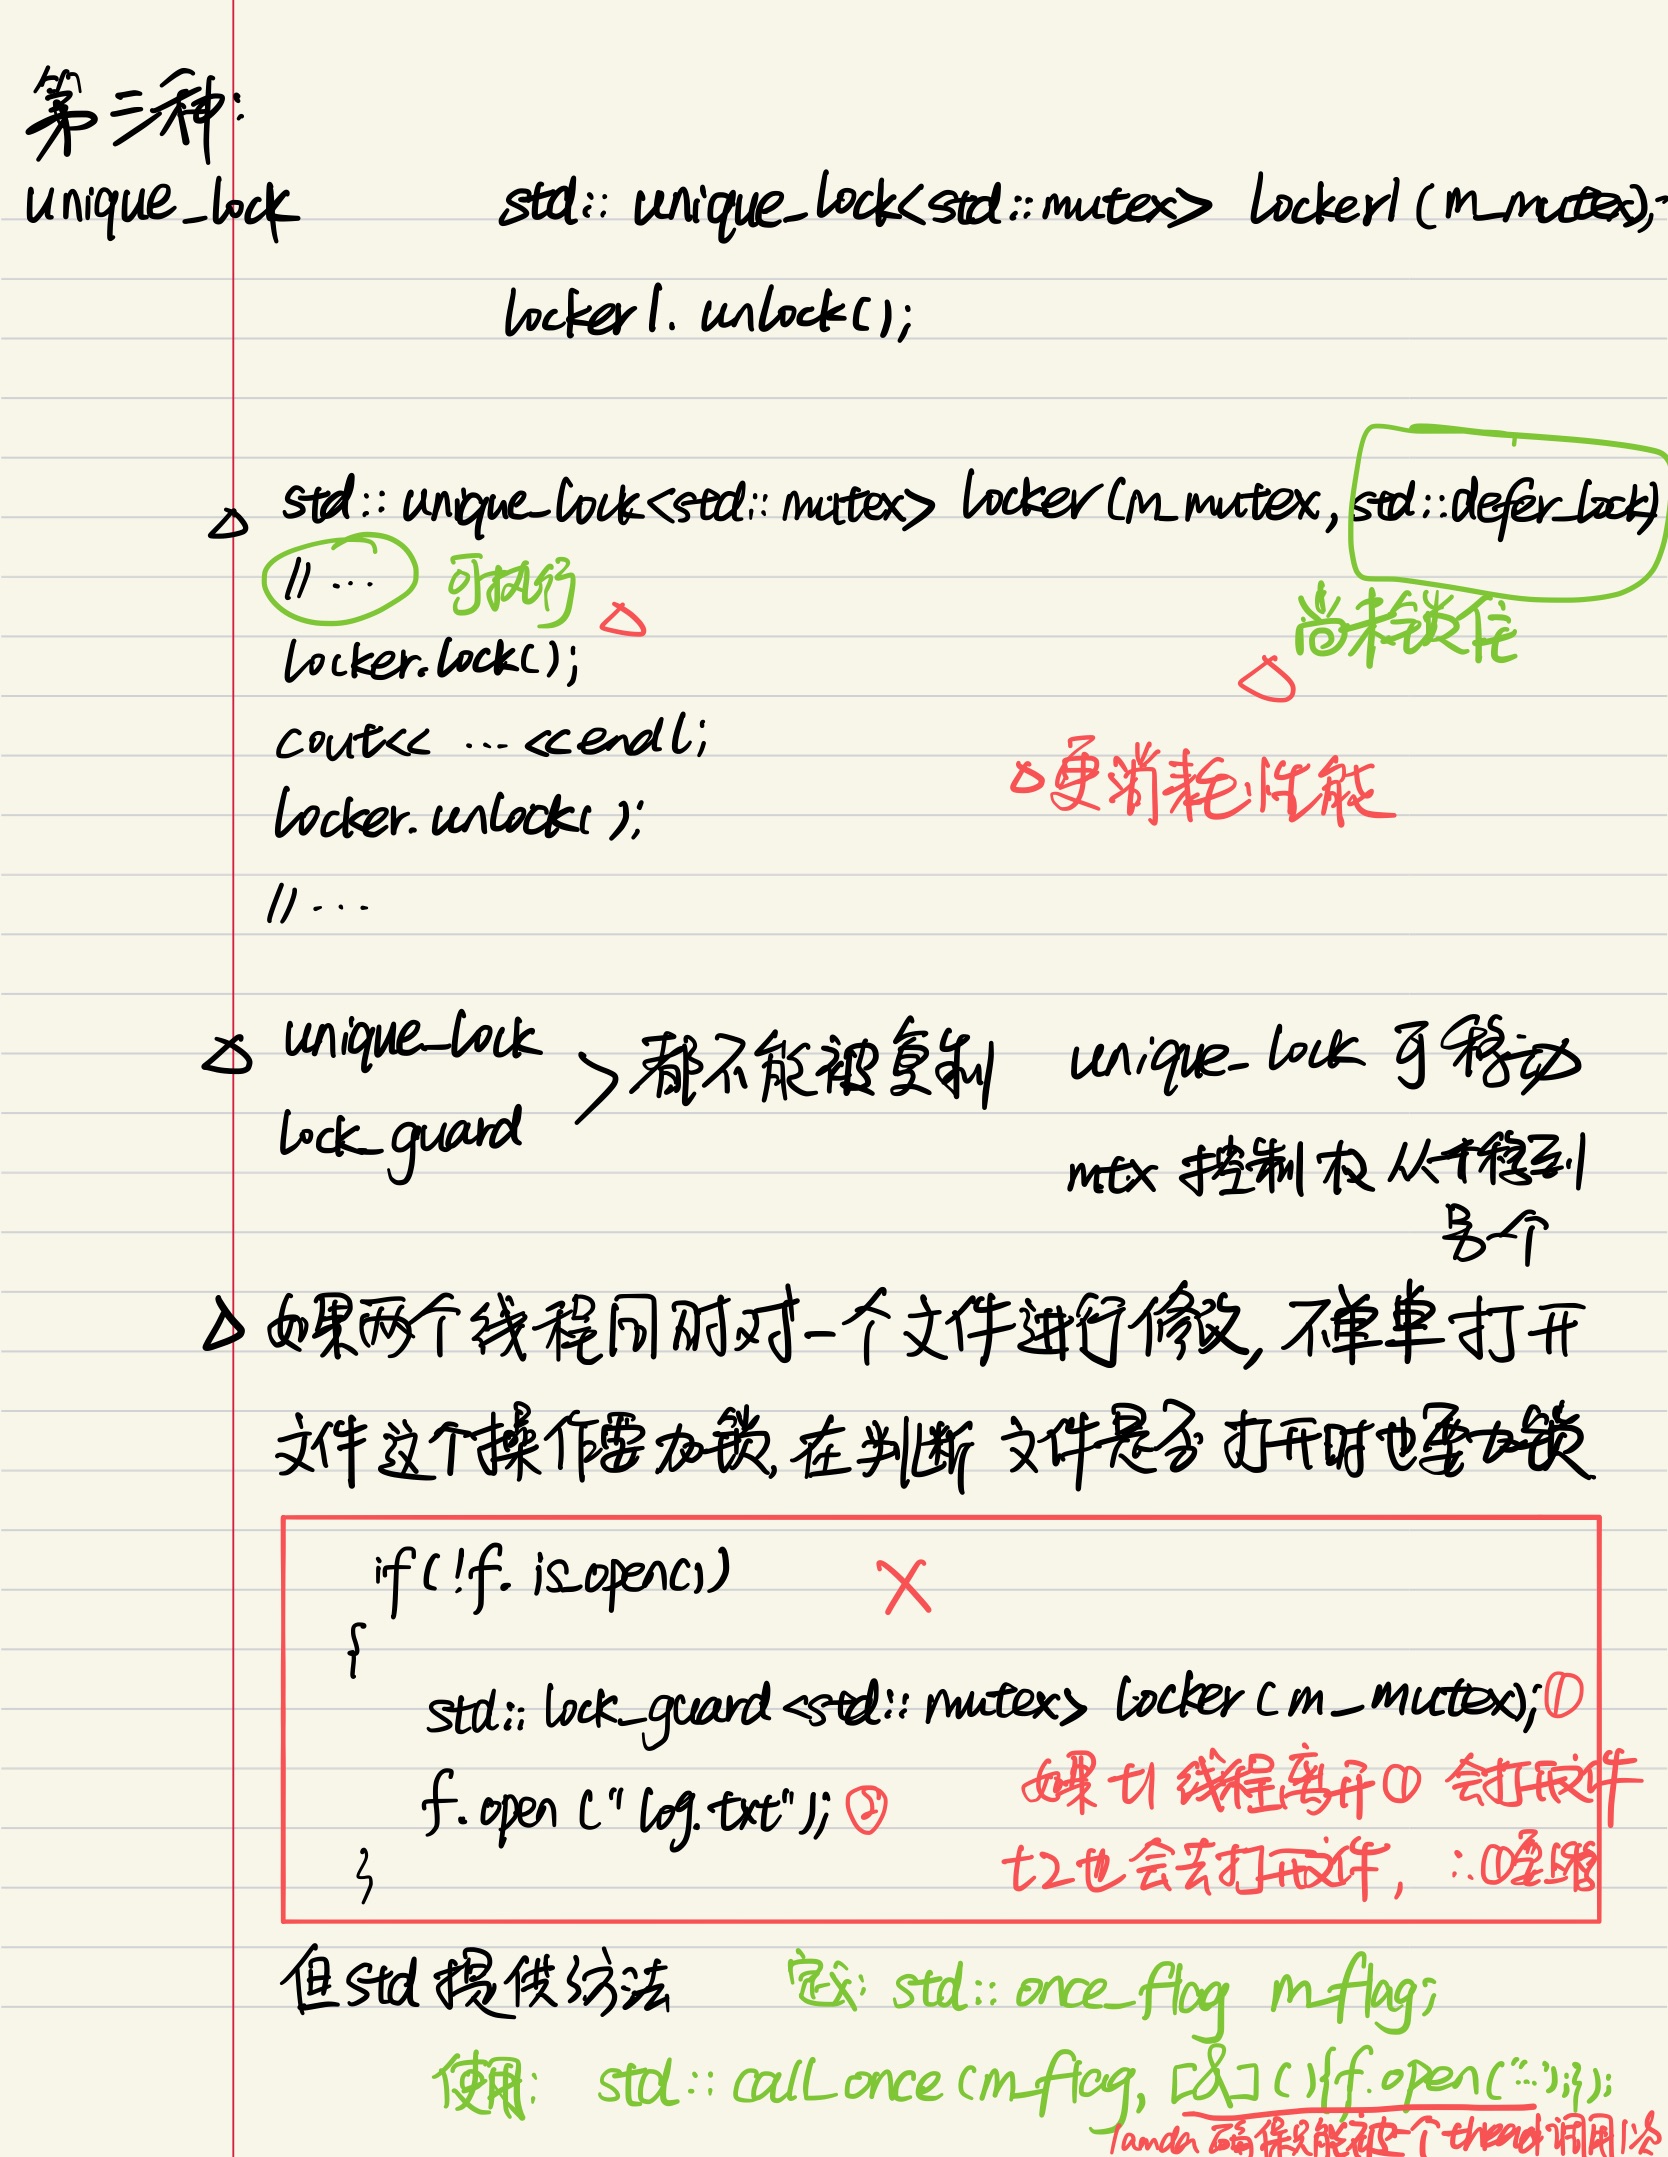 第三种:
unique_lock
std:: unique_lock<std::mutex> locker1 (m_mutex);
locker1. unlock();
std:: unique_lock<std::mutex> locker(m_mutex, std::defer_lock)
// ... 可执行
尚未锁住
locker.lock();
cout<< ... <<endl;
更消耗性能
locker.unlock( );
// ...
unique_lock
lock_guard
> 都不能被复制
unique_lock 可移动
mtx 控制权从一个移到
另一个
如果两个线程同时对一个文件进行修改, 不单单打开
文件这个操作要加锁, 在判断文件是否打开时也要加锁
if(!f. is_open()) ×
{
std:: lock_guard <std:: mutex> locker (m_mutex); ①
f.open ("log.txt"); ②
如果 t1 线程离开① 会打开文件
t2也会去打开文件, ∴①要上移
}
但std提供了方法
定义: std:: once_flag m_flag;
使用: std:: call_once (m_flag, [&] () {f.open("...");});
lamda 确保只能被一个 thread 调用1次